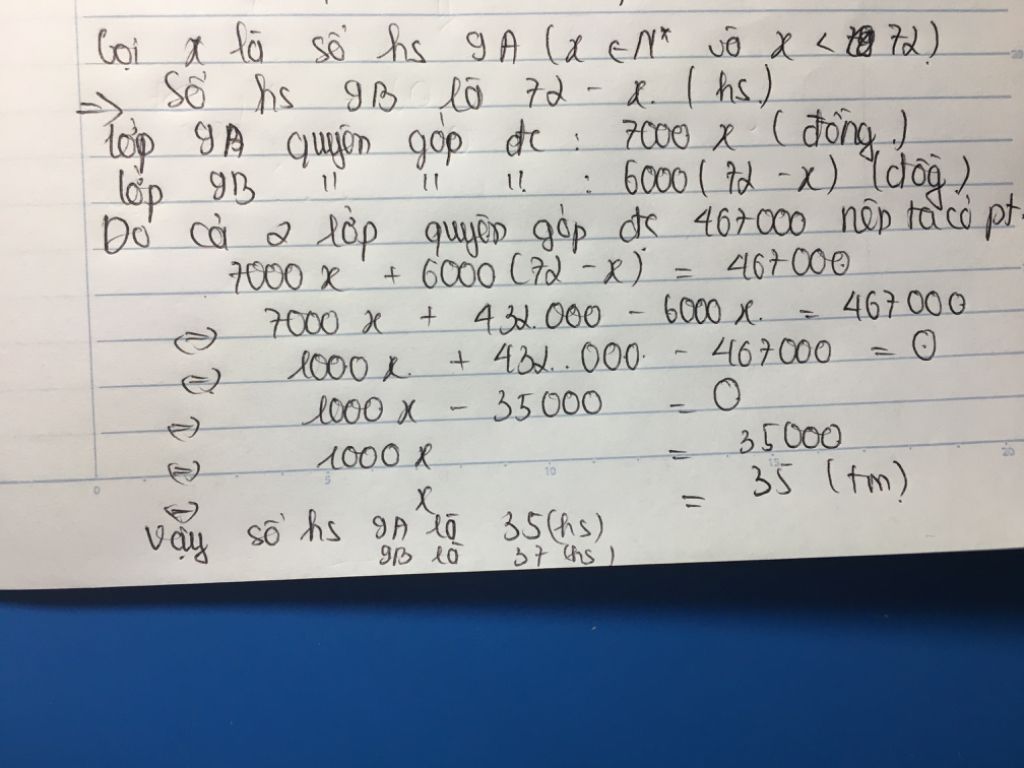 Gọi x là số hs 9A (x ∈ N* và x < 72)
=> Số hs 9B là 72 - x. (hs)
lớp 9A quyên góp đc : 7000 x (đồng)
lớp 9B " " " : 6000(72 - x) (đồg)
Do cả 2 lớp quyên góp đc 467000 nên ta có pt
7000 x + 6000 (72 - x) = 467000
<=> 7000 x + 432.000 - 6000 x. = 467000
<=> 1000 x. + 432..000. - 467000 = 0
<=> 1000 x - 35000 = 0
<=> 1000 x = 35000
<=> x = 35 (tm)
Vậy số hs 9A là 35(hs)
9B là 37 (hs)
0 5 10 15 20